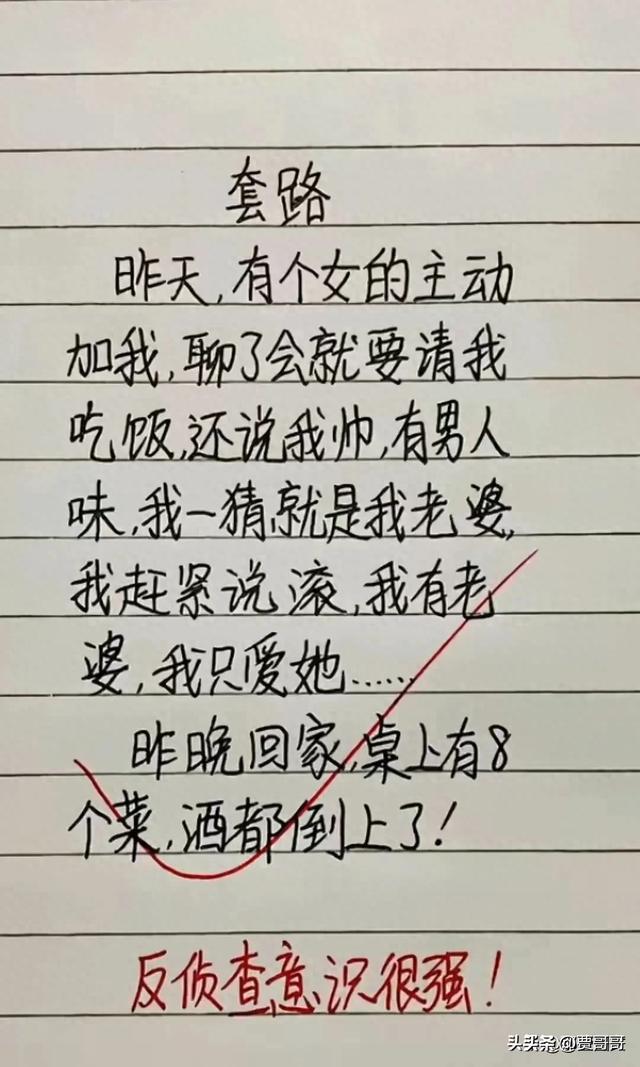 套路
昨天,有个女的主动
加我,聊了会就要请我
吃饭,还说我帅,有男人
味,我一猜就是我老婆,
我赶紧说滚,我有老
婆,我只爱她……
昨晚回家,桌上有8
个菜,酒都倒上了!
反侦查意识很强!
头条 @贾哥哥